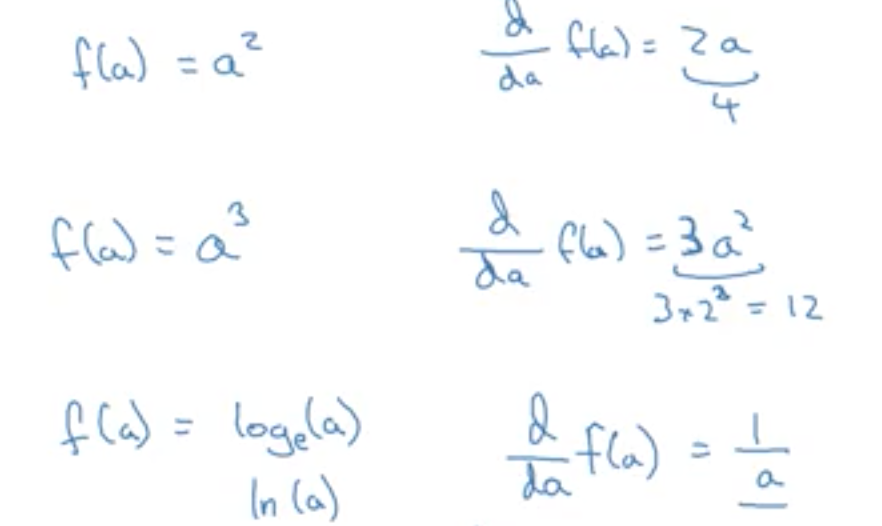 f(a) = a²    d/da f(a) = 2a
4
f(a) = a³    d/da f(a) = 3a²
3×2² = 12
f(a) = logₑ(a)    d/da f(a) = 1/a
ln(a)